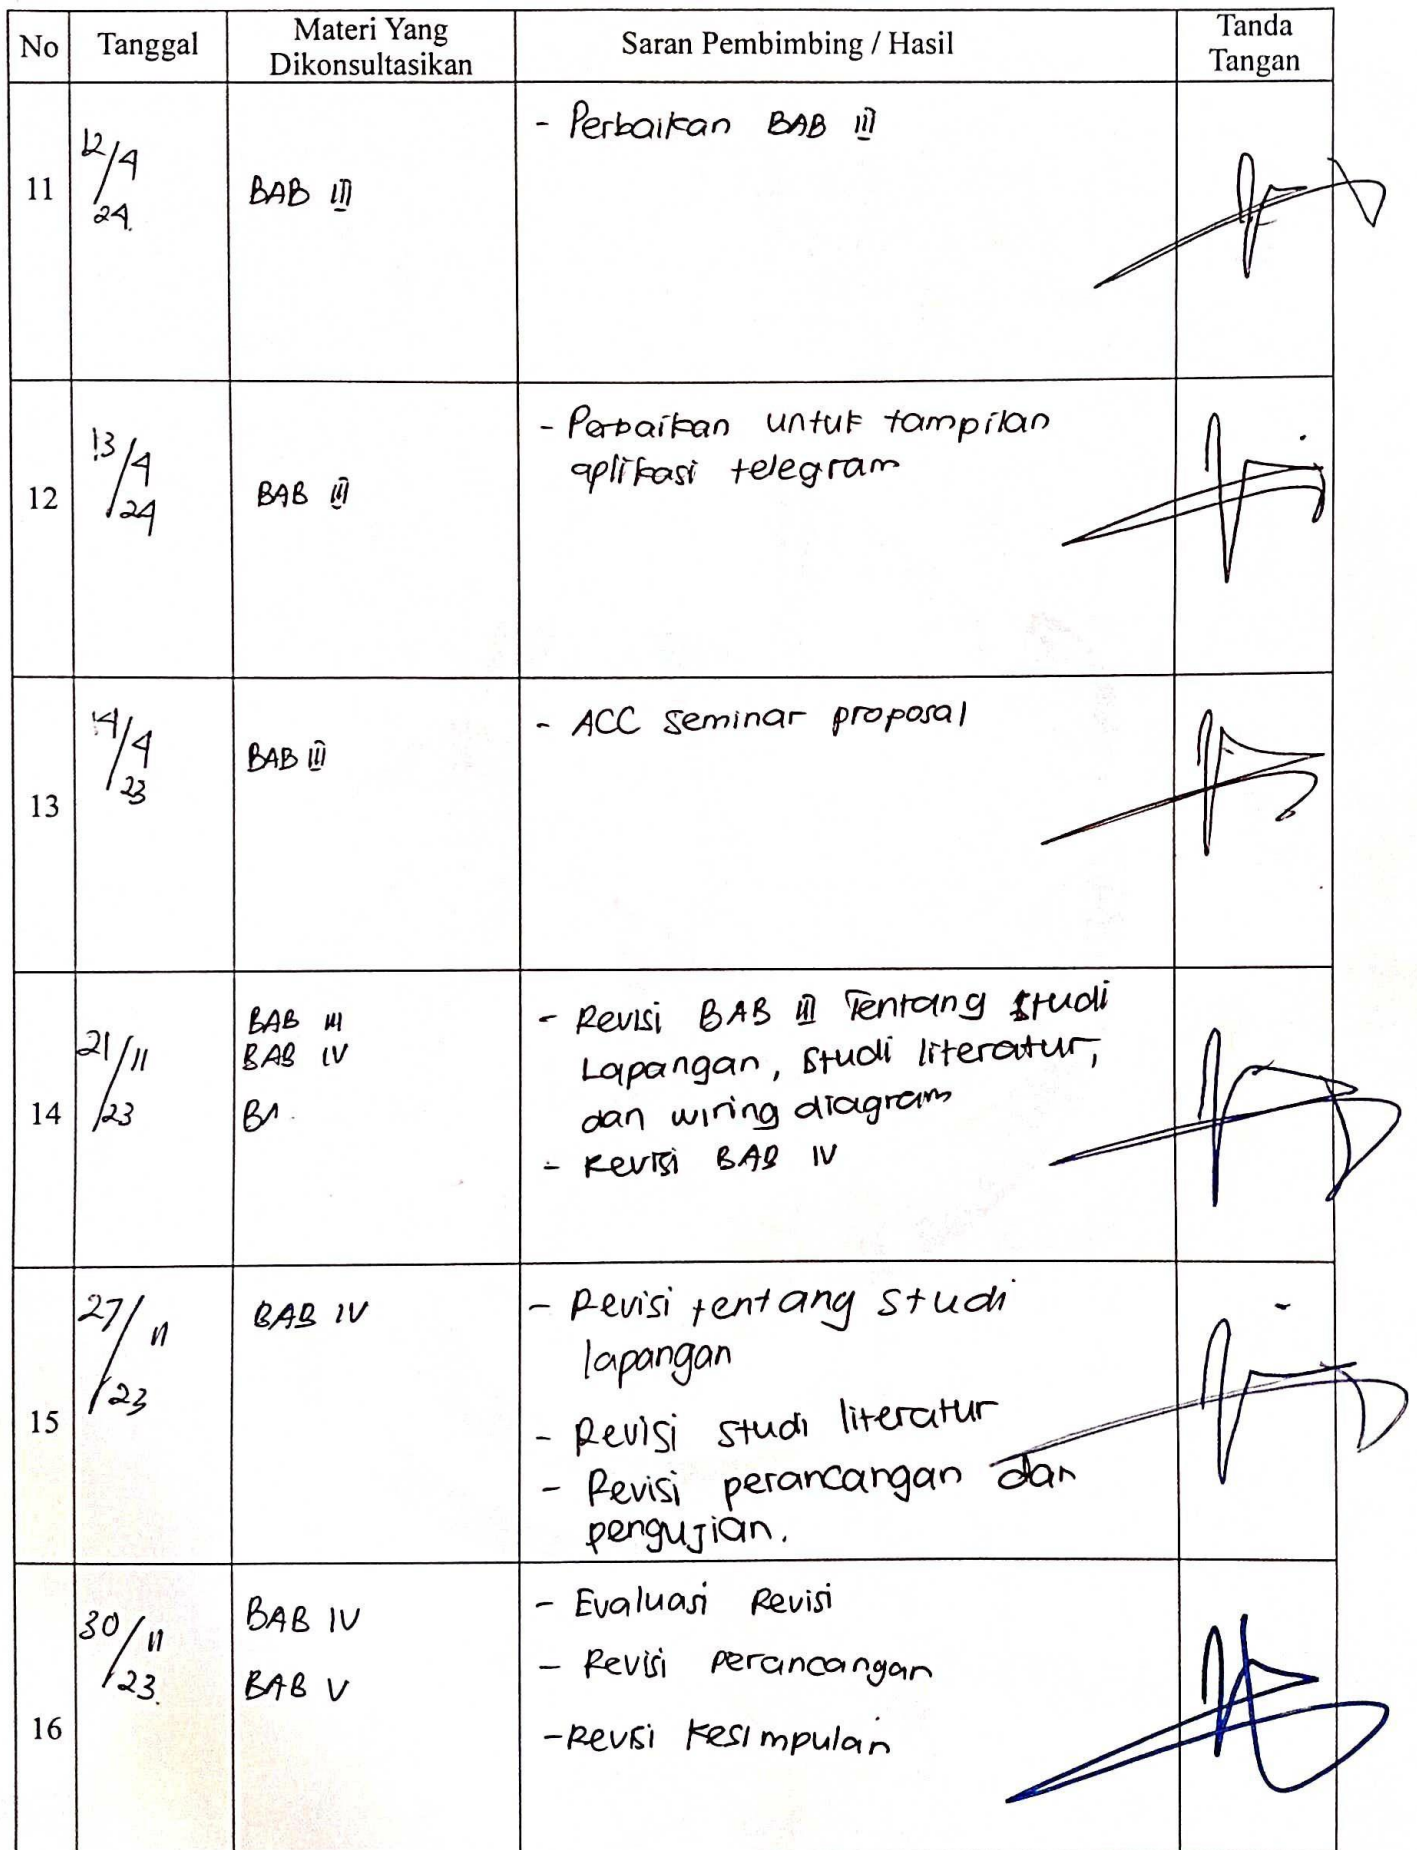 No Tanggal Materi Yang Dikonsultasikan Saran Pembimbing / Hasil Tanda Tangan
11 12/4 24. BAB III - Perbaikan BAB III
12 13/4/24 BAB III - Perbaikan untuk tampilan
aplikasi telegram
13 14/4/23 BAB III - ACC seminar proposal
14 21/11/23 BAB III - Revisi BAB III Tentang studi
BAB IV Lapangan, studi literatur,
dan wiring diagram
- Revisi BAB IV
15 27/11/23 BAB IV - Revisi tentang studi
lapangan
- Revisi studi literatur
- Revisi perancangan dan
pengujian.
16 30/11/23. BAB IV - Evaluasi Revisi
BAB V - Revisi perancangan
- Revisi Kesimpulan